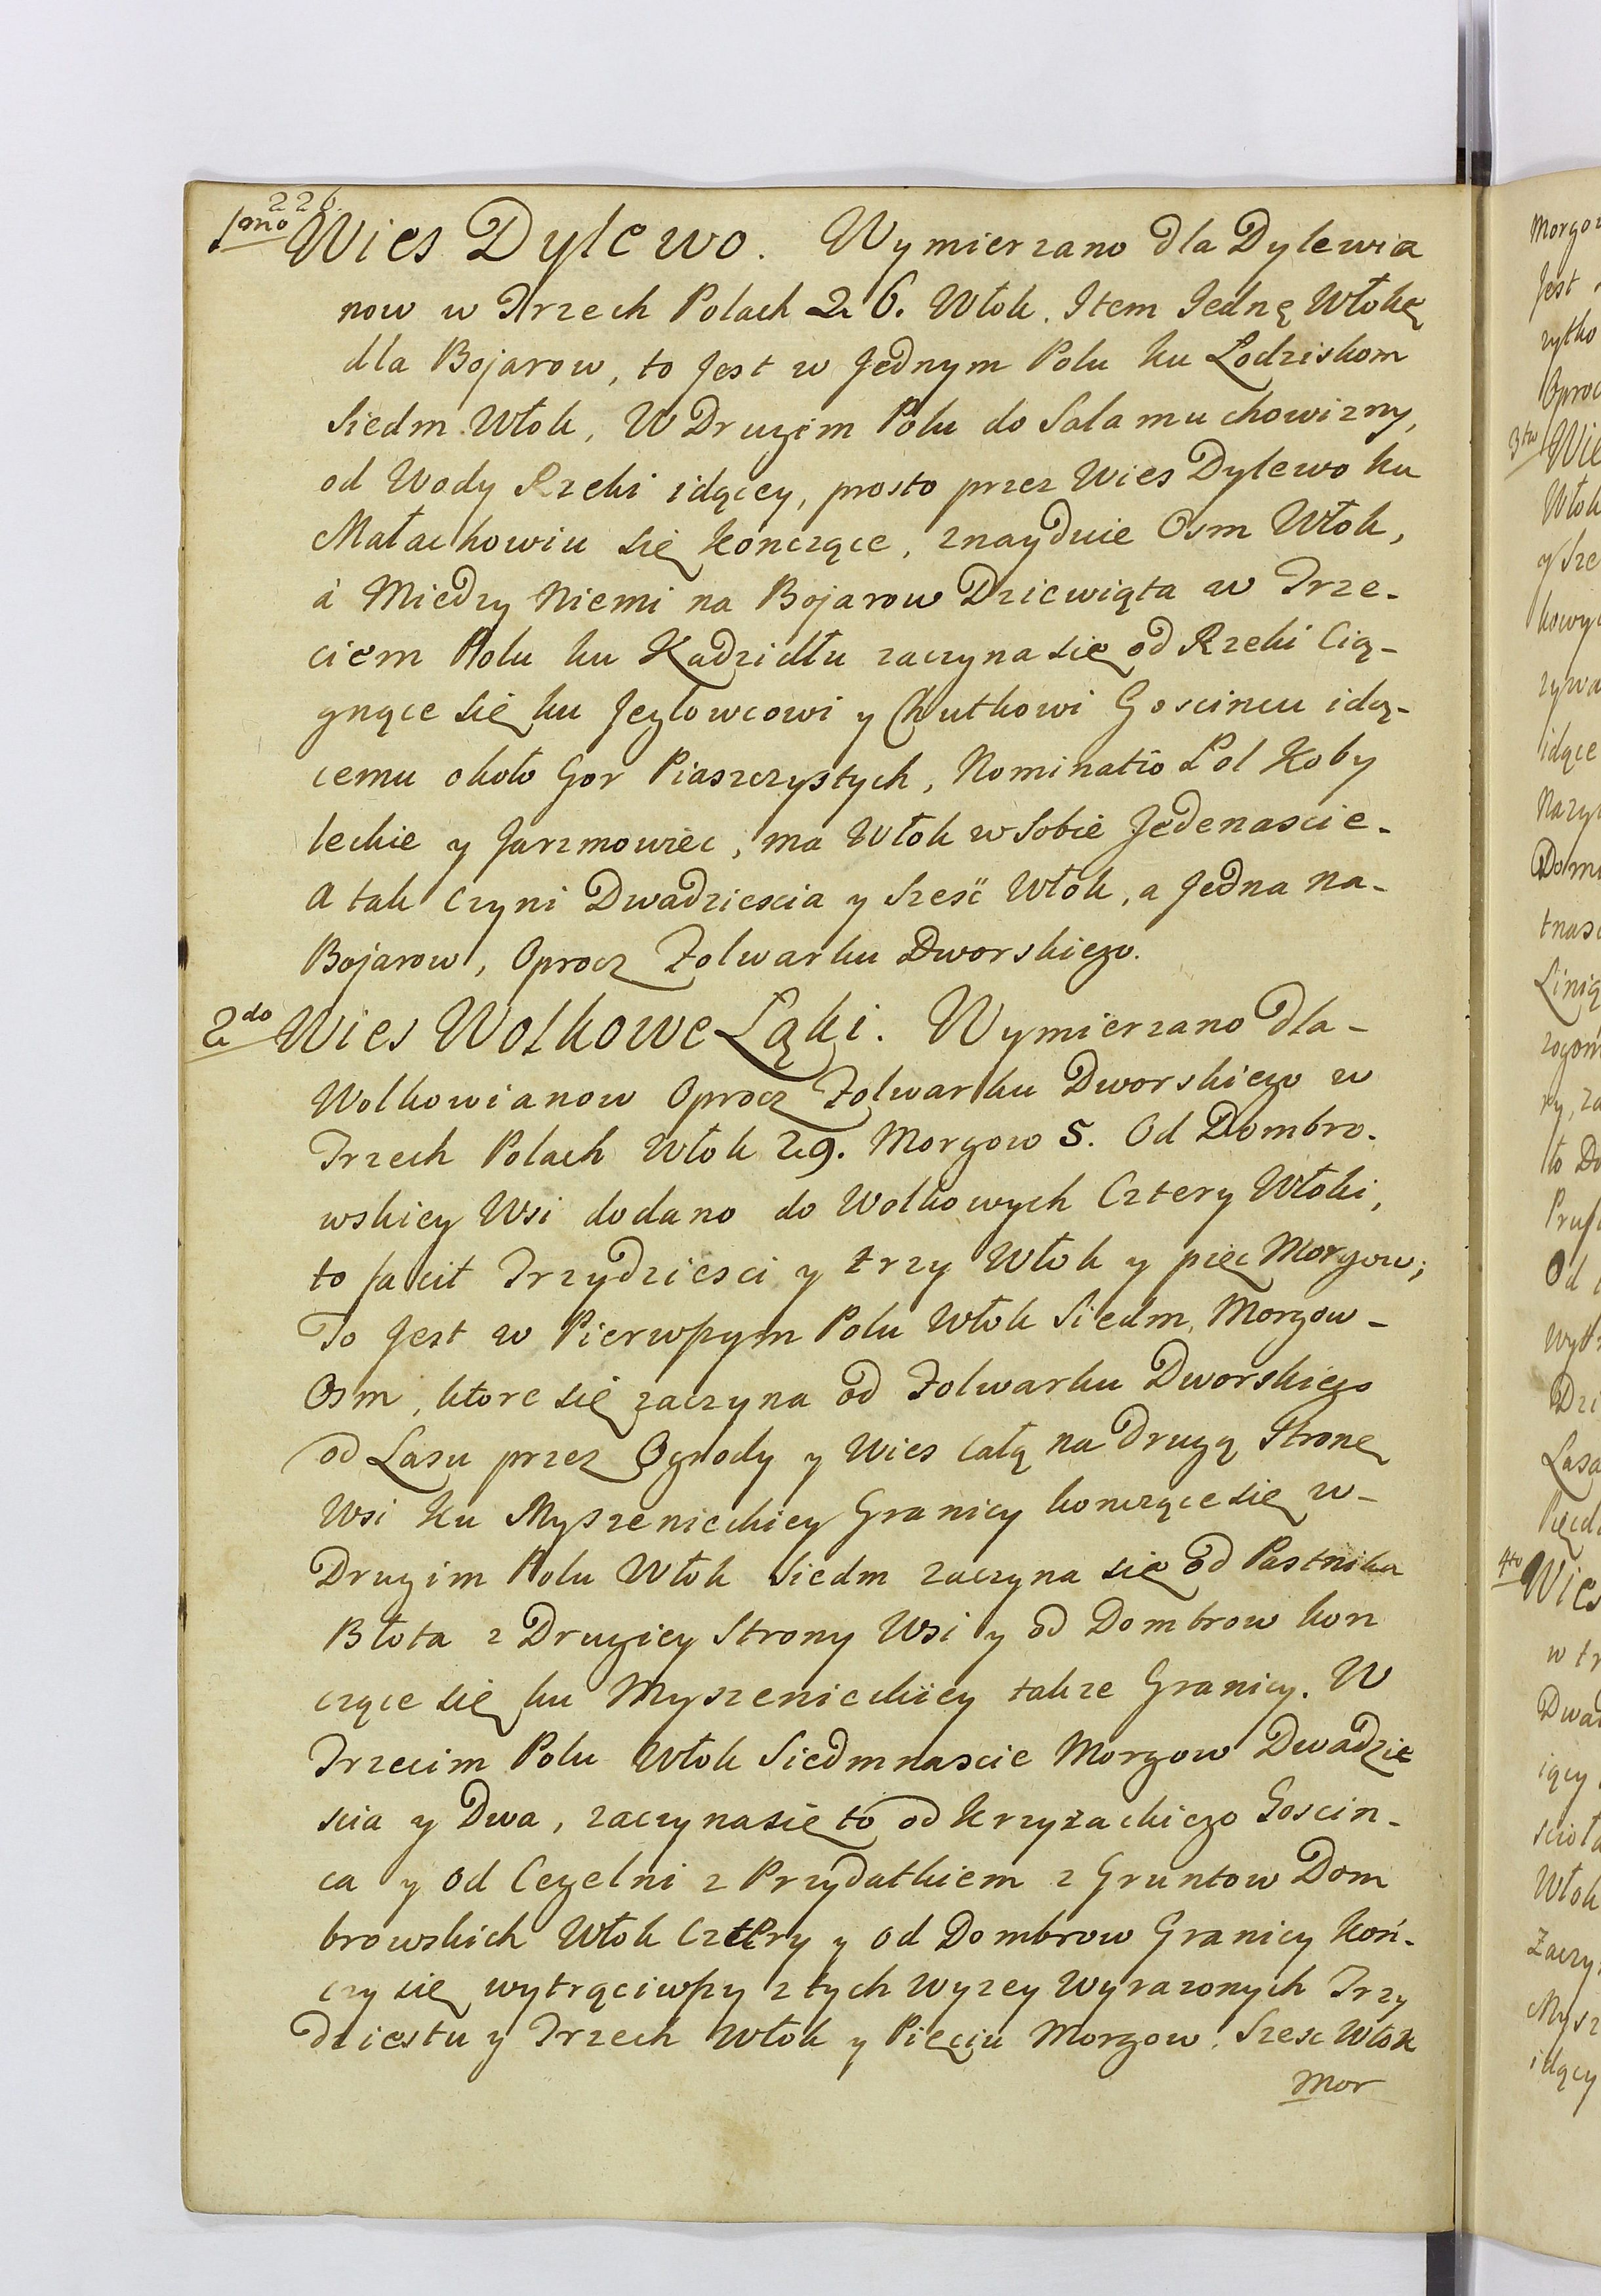 226.
1mo Wies Dylewo. Wymierzano dla Dylewia
now w Trzech Polach 26. Włok. Item Jednę Włokę
dla Bojarow, to Jest w Jednym Polu ku Lodziskom
Siedm Włok, W Drugim Polu do Salamuchowizny,
od Wody Rzeki idącey, prosto przez Wies Dylewo ku
Małachowiu się kończące, znayduie Osm Włok,
à Miedzy Niemi na Bojarow Dziewiąta w Trze-
ciem Polu ku Kadzidłu zaczyna się od Rzeki Cią-
gnące się ku Jeglowcowi y Chutkowi Goscincu idą-
cemu około Gor Piaszczystych, Nominatio Pol Koby
leckie y Jarzmowiec, ma Włok w Sobie Jedenascie-
A tak Czyni Dwadziescia y Szesć Włok, a Jedna na-
Bojarow, Oprocz Folwarku Dworskiego.
2do Wies Wolkowe Ląki. Wymierzano dla-
Wolkowianow Oprocz Folwarku Dworskiego w
Trzech Polach Włok 29. Morgow 5. Od Dombro-
wskiey Wsi dodano do Wolkowych Cztery Włoki,
to facit Trzydziesci y trzy Włok y pięc Morgow;
To Jest w Pierwszym Polu Włok Siedm, Morgow-
Osm, ktore się zaczyna od Folwarku Dworskiego
od Lasu przez Ogrody y Wies całą na Drugą Stronę
Wsi ku Myszenieckiey Granicy kończące się w-
Drugim Polu Włok Siedm zaczyna się od Pastnika
Błota z Drugiey Strony Wsi y od Dombrow kon
czące się ku Myszenieckiey takze Granicy. W
Trzecim Polu Włok Siedmnascie Morgow Dwadzie
scia y Dwa, zaczyna się to od Krzyżackiego Goscin-
ca y od Cegelni z Przydatkiem z Gruntow Dom
browskich Włok Cztery y od Dombrow Granicy Koń-
czy się wytrąciwszy z tych wyzey Wyrazonych Trzy
dziestu y Trzech Włok y Pięciu Morgow. Szesc Włok
Mor